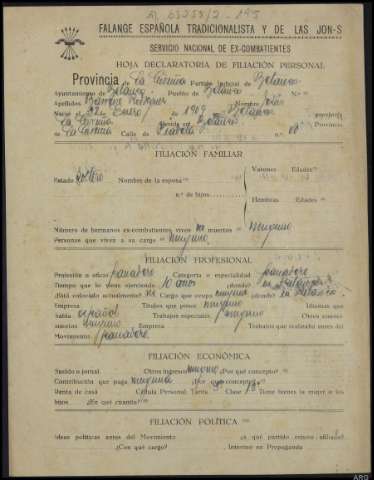 FALANGE ESPAÑOLA TRADICIONALISTA Y DE LAS JON-S
SERVICIO NACIONAL DE EX-COMBATIENTES
HOJA DECLARATORIA DE FILIACIÓN PERSONAL
Provincia de La Coruña Partido judicial de Betanzos
Ayuntamiento de Betanzos Pueblo de Betanzos N.º
Apellidos Nombre
Nació el de Enero de 1909 en Betanzos Provincia
La Coruña
de La Coruña Calle de n.º
FILIACIÓN FAMILIAR
Varones Edades
Estado Soltero Nombre de la esposa
n.º de hijos
Hembras Edades
Número de hermanos ex-combatientes vivos no muertos ninguno
Personas que viven a su cargo ninguno
FILIACIÓN PROFESIONAL
Profesión u oficio panadero Categoría o especialidad panadero
Tiempo que lo viene ejerciendo 10 años ¿dónde? en Betanzos
¿Está colocado actualmente? no Cargo que ocupa ninguno ¿dónde? en Betanzos
Empresa Títulos que posee ninguno Idiomas que
habla español Trabajos especiales ninguno Otros conoci-
mientos ninguno Empresa Trabajos que realizaba antes del
Movimiento panadero
FILIACIÓN ECONÓMICA
Sueldo o jornal Otros ingresos ninguno ¿Por qué concepto?
Contribución que paga ninguna ¿Por qué concepto?
Renta de casa Cédula Personal Tarifa Clase Tiene bienes la mujer o los
hijos ¿En qué cuantía?
FILIACIÓN POLÍTICA
Ideas políticas antes del Movimiento ¿a qué partido estuvo afiliado?
¿Con qué cargo? Intervino en Propaganda